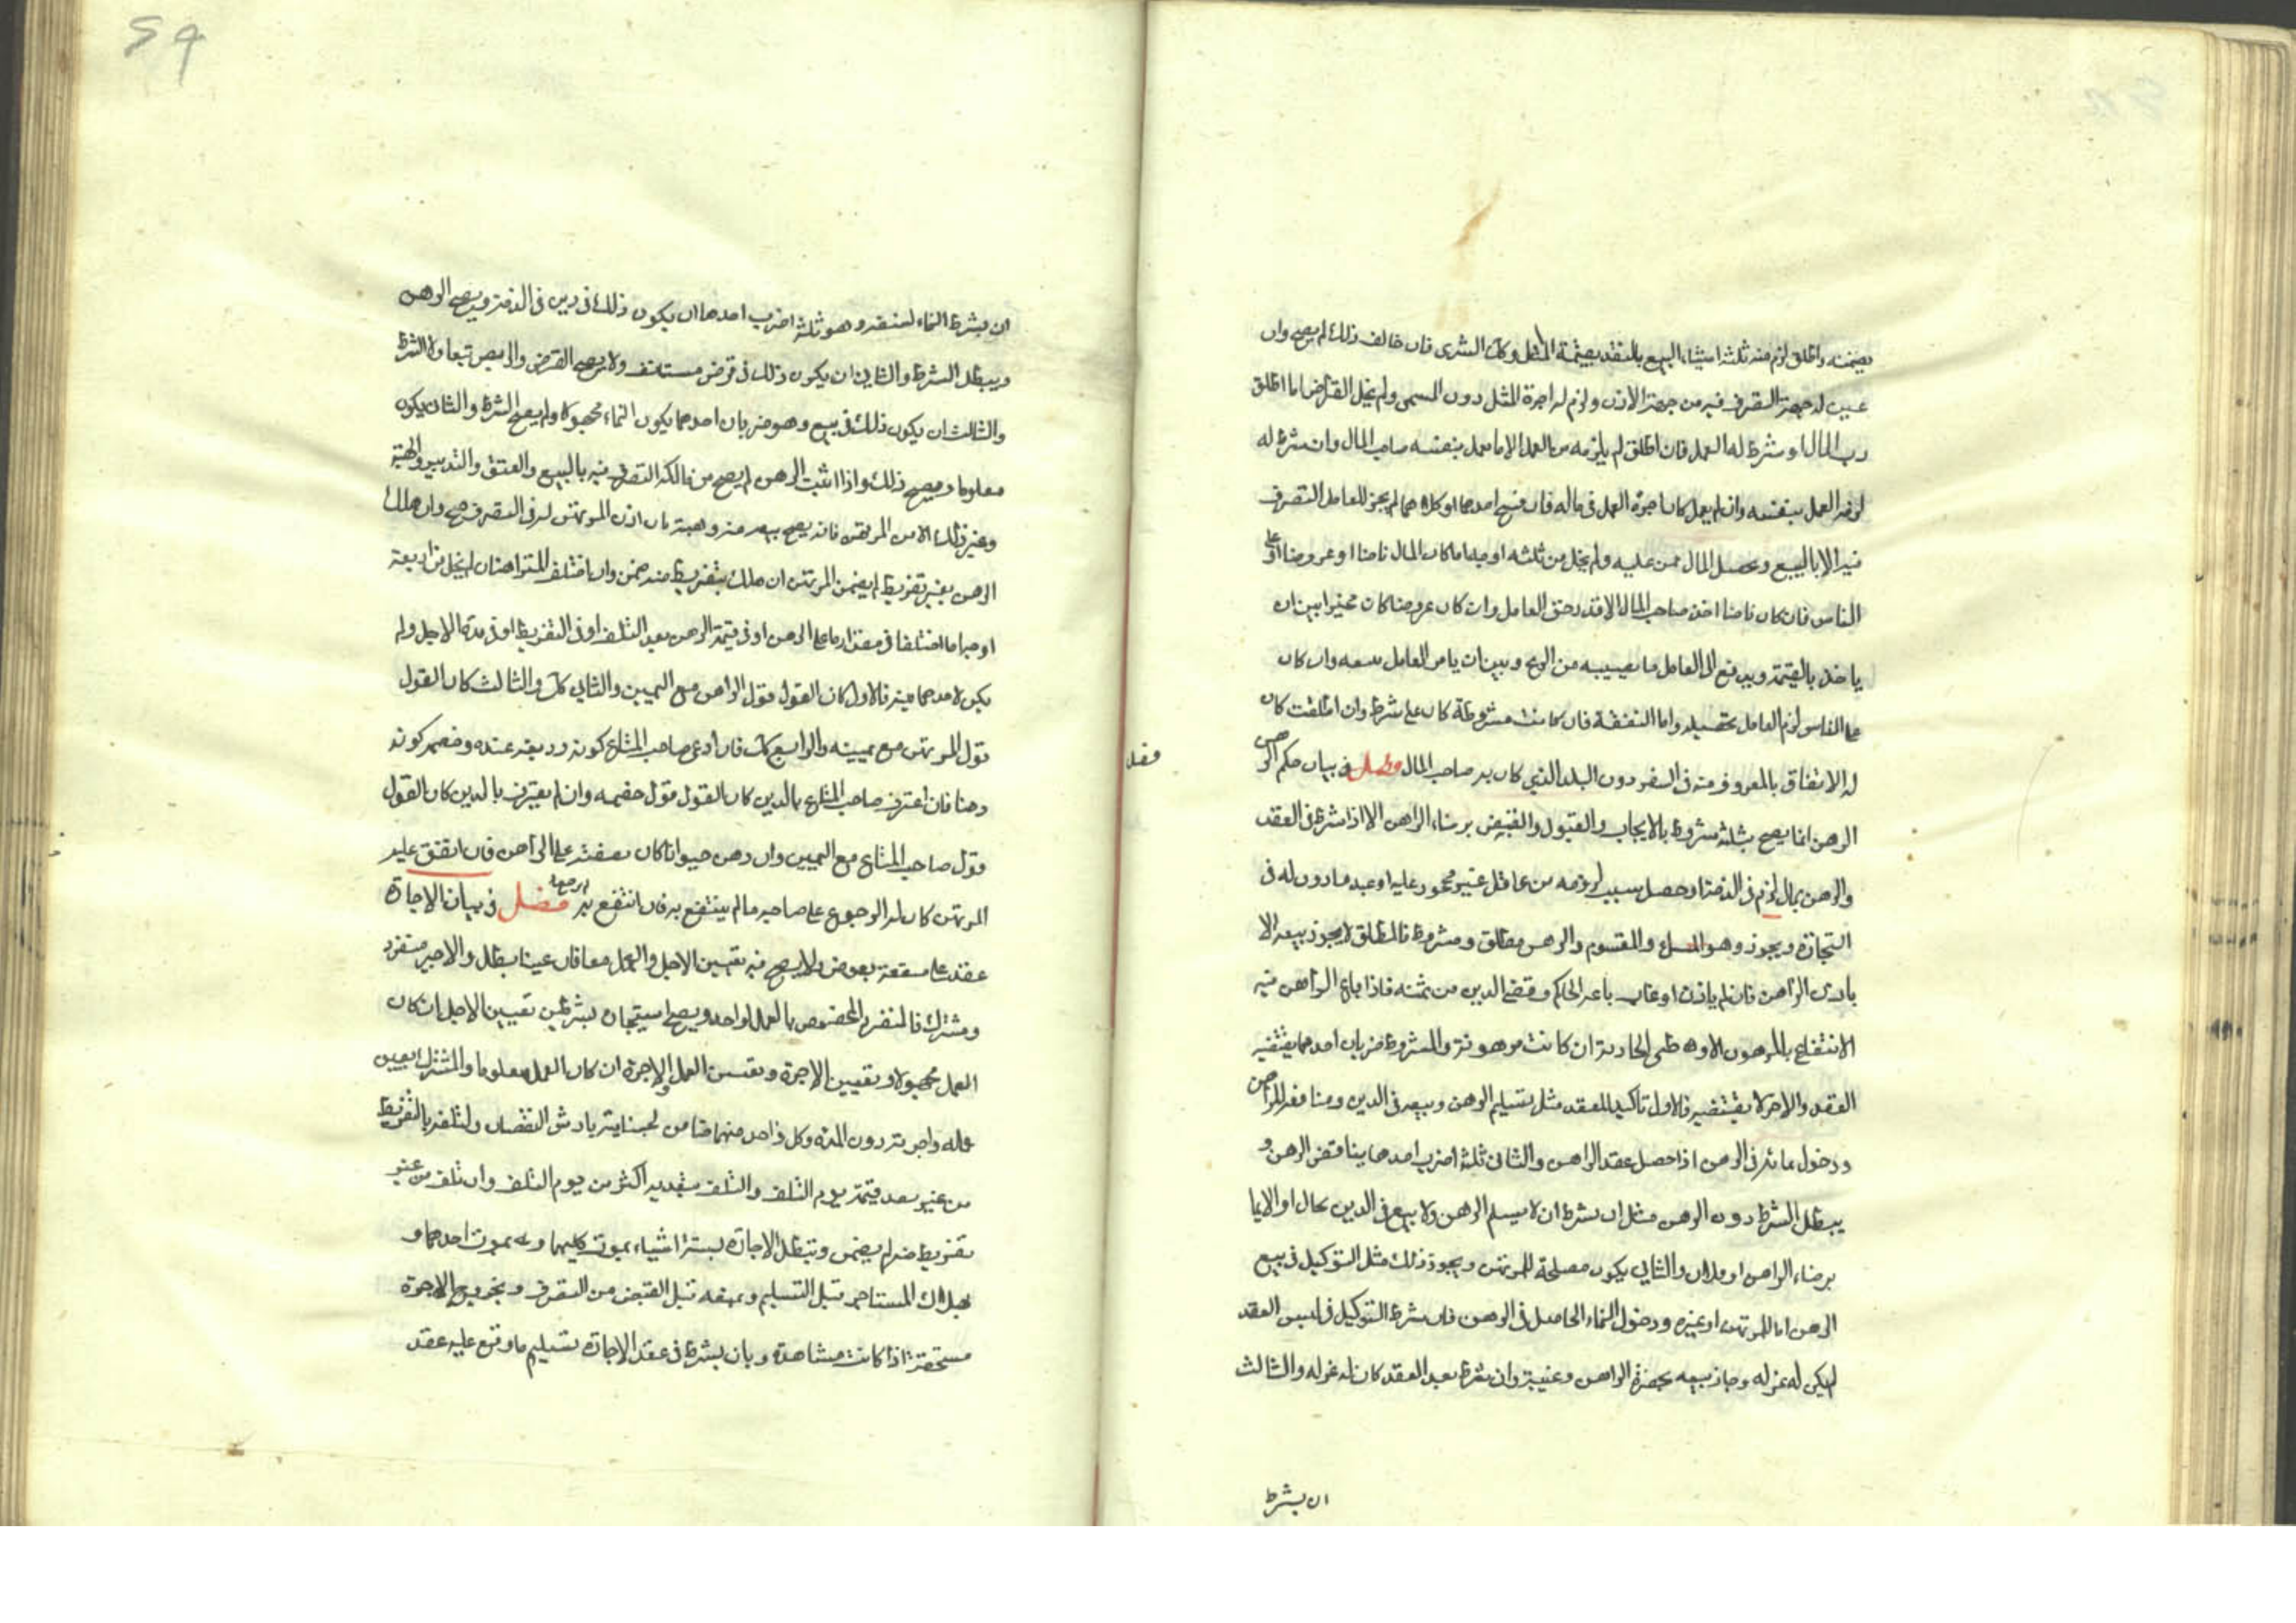 يضمنه واطلق لزم منه ثلثة اشياء البيع بالنقد بقيمة المثل وكك الشرى فان خالف ذلك لم يصح وان
عين له جهة التصرف فيه من جهة الاذن ولزم له اجرة المثل دون المسمى ولم يخل القراض اما اطلق
رب المال او شرط له العمل فان اطلق لم يلزمه من العمل الا ما يعمل بنفسه صاحب المال وان شرط له
لزمه العمل بنفسه وان لم يعمل كان اجرة العمل في ماله فان فسخ احدهما او كلاهما لم يجز للعامل التصرف
فيه الا بالبيع وتحصل المال ممن عليه ولم يخل من ثلثه اوجه اما كان المال ناضا او عروضا او على
الناس فان كان ناضا اخذ صاحب المال الا قدر حق العامل وان كان عروضا كان مخيرا بين ان
ياخذ بالقيمة ويدفع الى العامل ما يصيبه من الربح وبين ان يامر العامل ببيعه وان كان
على الناس لزم العامل تحصيله واما النفقة فان كانت مشروطة كان على شرط وان اطلقت كان
له الانفاق بالمعروف منه في السفر دون البلد الذي كان به صاحب المال فصل في بيان حكم الرهن
فصل
الرهن انما يصح بثلثة شروط بالايجاب والقبول والقبض برضاء الراهن الا اذا شرط في العقد
والرهن بمال لزم في الذمة او حصل سبب لزومه من عاقل غير محجور عليه او عبد ماذون له في
التجارة ويجوز رهن المشاع والمقسوم والرهن مطلق ومشروط فالمطلق لا يجوز بيعه الا
باذن الراهن فان لم ياذن او غاب باعه الحاكم وقضى الدين من ثمنه فاذا باع الراهن فيه
الانتفاع بالمرهون الا وطى الجارية ان كانت مرهونة والمشروط ضربان احدهما يقتضيه
العقد والاخر لا يقتضيه فالاول تاكيد للعقد مثل تسليم الرهن وبيعه في الدين ومنافعه للراهن
ودخول نمائه في الرهن اذا حصل عقد الراهن والثاني ثلثة اضرب احدها ينافض الرهن و
يبطل الشرط دون الرهن مثل ان شرط ان لا يسلم الرهن ولا يبيع في الدين بحال او الا بما
برضاء الراهن او فلان والثاني يكون مصلحة للمرتهن ويجوز ذلك مثل التوكيل في بيع
الرهن اما للمرتهن او غيره ودخول النماء الحاصل في الرهن فان شرط التوكيل في نفس العقد
لم يكن له عزله وجاز بيعه بحضرة الراهن وغيبته وان شرط بعد العقد كان له عزله والثالث
ان يشرط
ان يشرط النماء لنفسه وهو ثلثة اضرب احدها ان يكون ذلك في دين في الذمة ويصح الرهن
ويبطل الشرط والثاني ان يكون ذلك في قرض مستانف ولا يصح القرض والرهن تبعا ولا الشرط
والثالث ان يكون ذلك في بيع وهو ضربان احدهما يكون النماء مجهولا ولم يصح الشرط والثاني يكون
معلوما ويصح ذلك واذا اثبت الرهن لم يصح من مالكه التصرف فيه بالبيع والعتق والتدبير والهبة
وغير ذلك الا من المرتهن فانه يصح بيعه منه وهبته فان اذن المرتهن له في التصرف صح وان هلك
الرهن بغير تفريط لم يضمن المرتهن ان هلك بتفريط منه ضمن وان اختلف المتراهنان لم يخل من اربعة
اوجه اما اختلفا في مقدار ما على الرهن او في قيمة الرهن بعد التلف او في التفريط او في مدة الاجل ولم
يكن لاحدهما بينة فالاول كان القول قول الراهن مع اليمين والثاني كك والثالث كان القول
قول المرتهن مع يمينه والرابع كك فان ادعى صاحب المتاع كونه وديعة عنده وخصمه كونه
رهنا فان اعترف صاحب المتاع بالدين كان القول قول خصمه وان لم يعترف بالدين كان القول
قول صاحب المتاع مع اليمين وان رهن حيوانا كان نفقته على الراهن فان انفق عليه
المرتهن كان له الرجوع على صاحبه ما لم ينتفع به فان انتفع به لم يرجع فصل في بيان الاجارة
عقد على منفعة بعوض ولا يصح فيه تعيين الاجل والعمل معا فان عينا بطل والاجير منفرد
ومشترك فالمنفرد المخصوص بالعمل لواحد ويصح استيجاره بشرطين تعيين الاجل ان كان
العمل مجهولا وتعيين الاجرة وتعيين العمل والاجرة ان كان العمل معلوما والمشترك يعين
عمله واجرته دون المدة وكل واحد منهما ضامن لجنايته بارش النقصان ولتلفه بالتفريط
من غير تعد قيمته يوم التلف والتلف بتعديه اكثر من يوم التلف وان تلف من غير
تفريط منه لم يضمن وتبطل الاجارة لستة اشياء بموت كليهما وبموت احدهما و
بهلاك المستاجر قبل التسليم وبمنعه قبل القبض من التصرف وبخروج الاجرة
مستحقة اذا كانت مشاهدة وبان يشرط في عقد الاجارة تسليم ما وقع عليه عقد